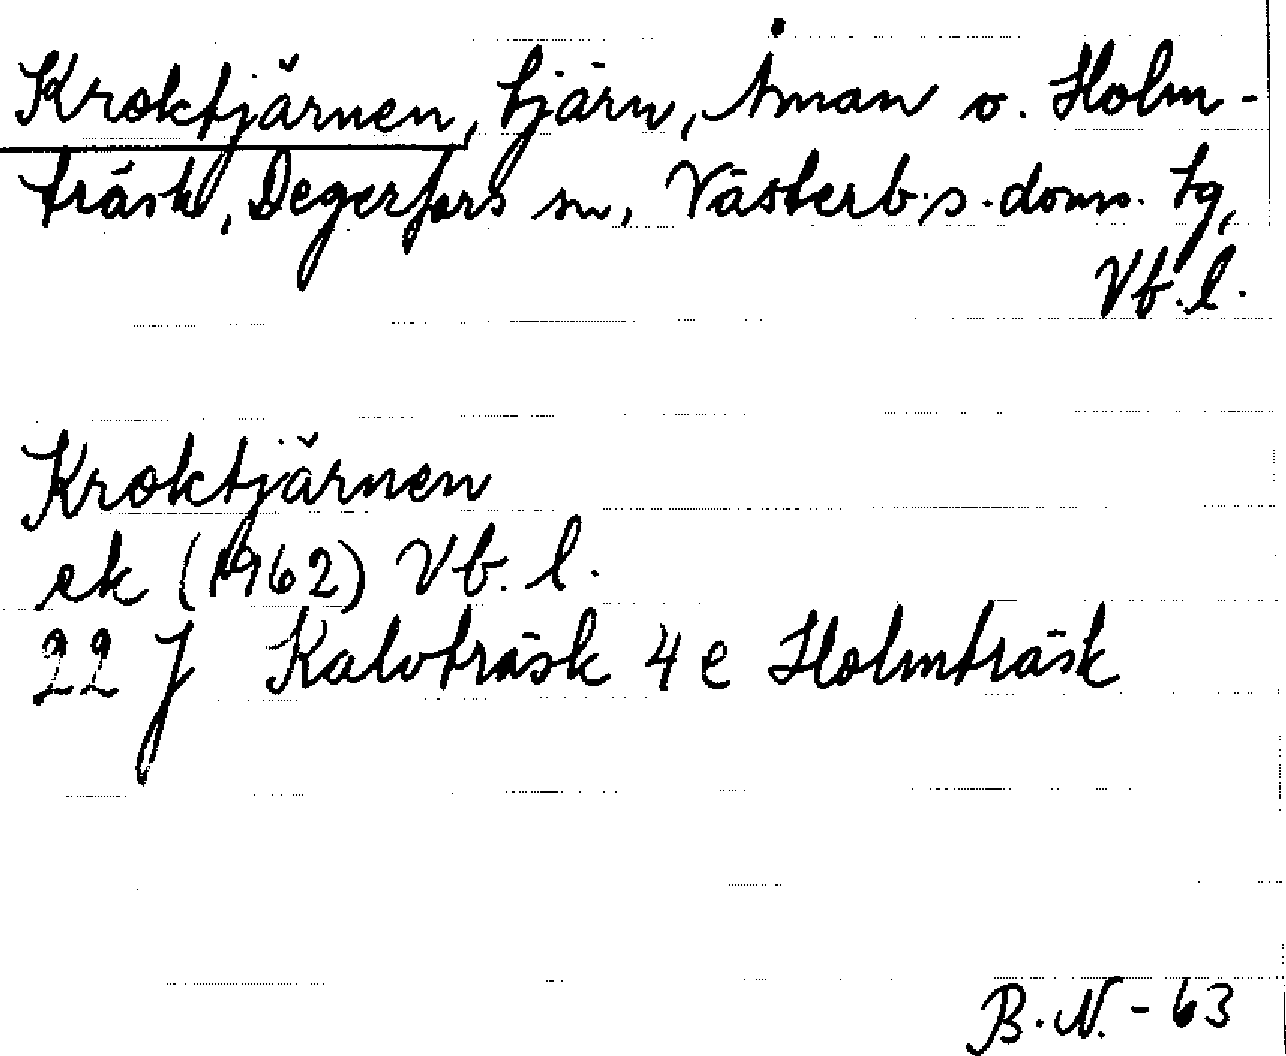 Kroktjärnen, tjärn, Åman o. Holm-
träsk, Degerfors sn, Västerb. s. doms. tg,
Vb. l.
Kroktjärnen
ek (1962) Vb. l.
22 J Kalvträsk 4 e Holmträsk
B. N. - 63